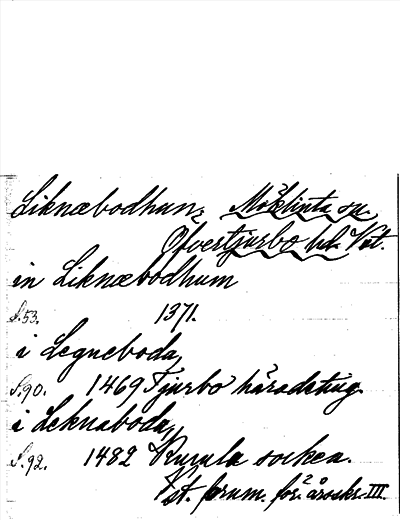 Liknæbodhum, Möklinta sn.
Ofvertjurbo hd. Vst.
in Liknæbodhum
S. 53. 1371.
i Legneboda,
S. 90. 1469 Tjurbo häradsting.
i Leknaboda,
S. 92. 1482 Rumla socken.
Vst. fornm. för:s årsskr. III.